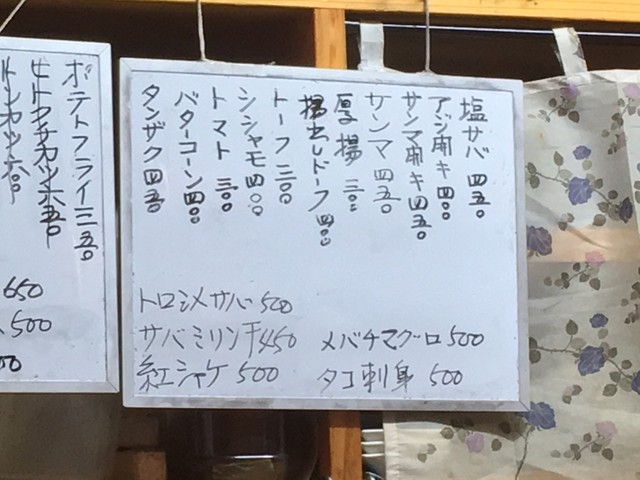 塩サバ 四五〇
アジ開キ 四〇〇
サンマ開キ 四五〇
サンマ 四五〇
厚揚 三〇〇
揚出しドーフ 四〇〇
トーフ 三〇〇
シシャモ 四〇〇
トマト 三〇〇
バターコーン 四〇〇
タンザク 四五〇
トロシメサバ 500
サバミリン干 450
紅シャケ 500
メバチマグロ 500
タコ刺身 500
ポテトフライ 三五〇
650
500